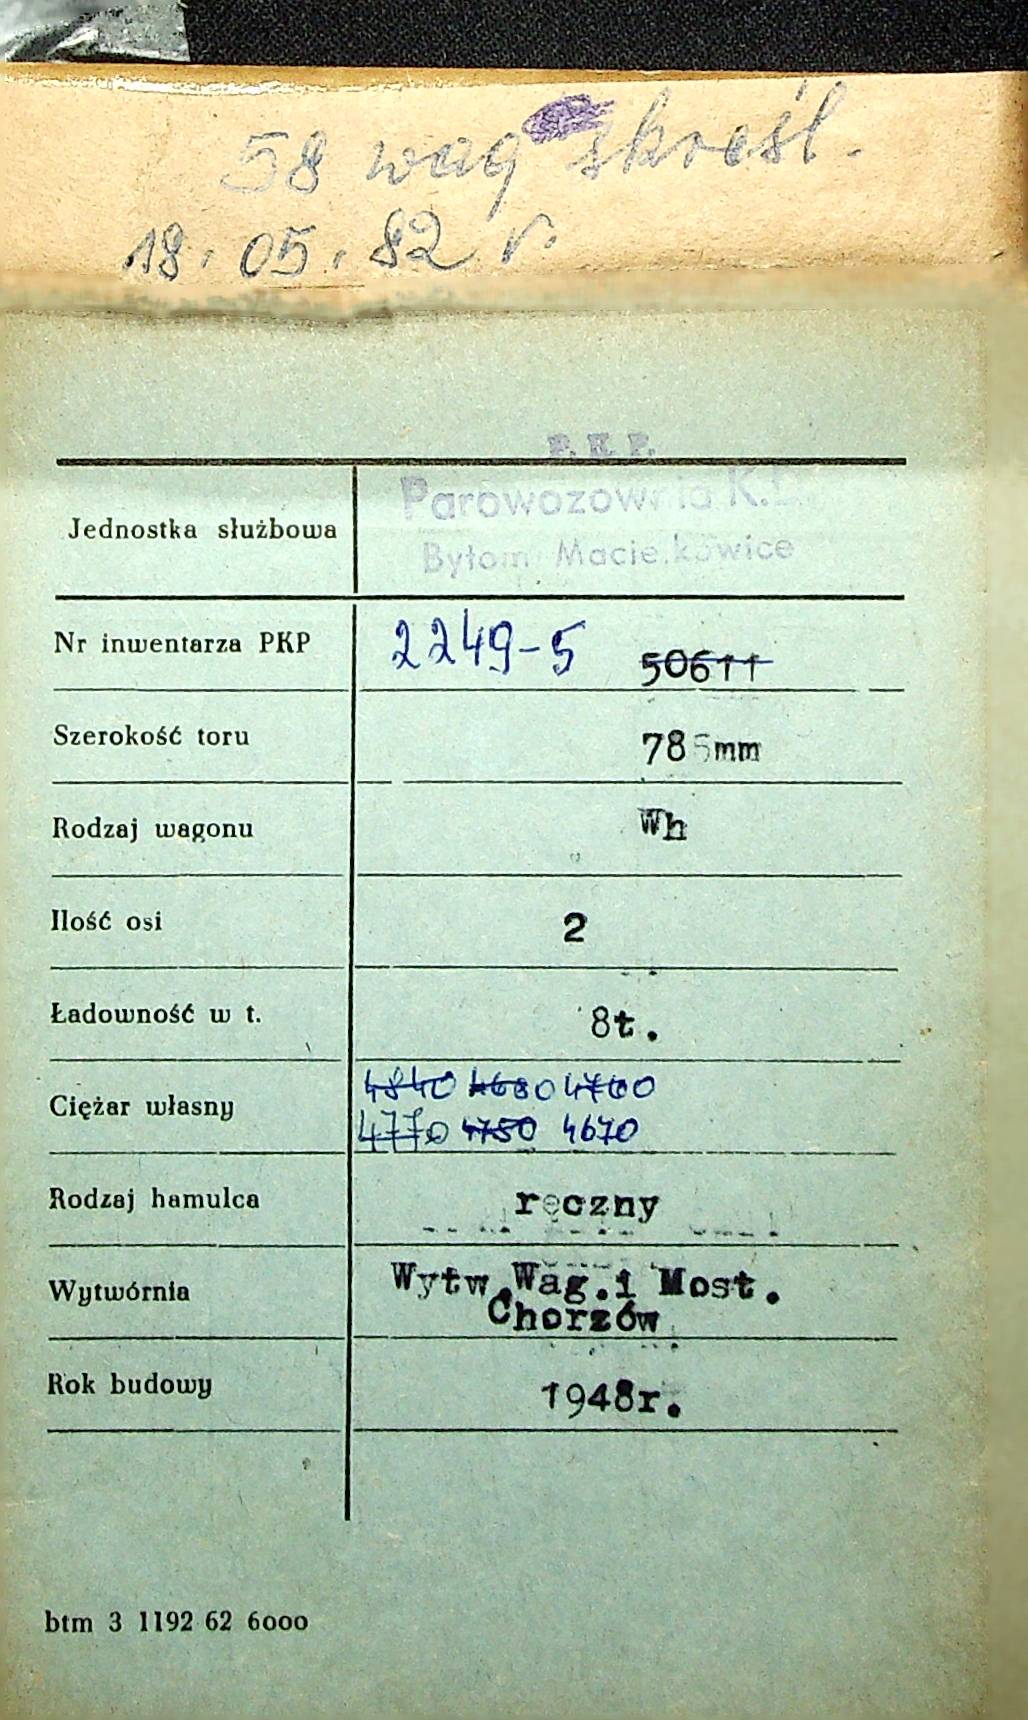 58 wag skreśl.
18.05.82 r.
P. K. P.
Jednostka służbowa Parowozownia K.D.
Bytom Maciejkowice
Nr inwentarza PKP 2249-5 50611
Szerokość toru 785mm
Rodzaj wagonu Wh
Ilość osi 2
Ładowność w t. 8t.
Ciężar własny 4840 4680 4760
4770 4750 4670
Rodzaj hamulca ręczny
Wytwórnia Wytw.Wag.i Most.
Chorzów
Rok budowy 1948r.
btm 3 1192 62 6000